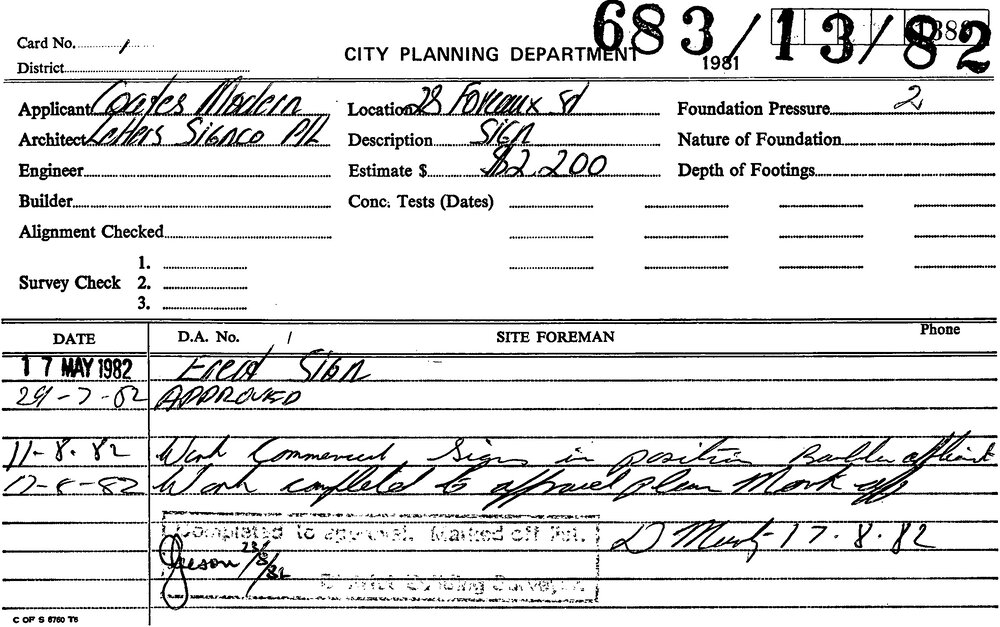 683/13/82
Card No.
CITY PLANNING DEPARTMENT
1981
District
Applicant Coates Modern Location 28 Foveaux St Foundation Pressure 2
Architect Letters Signco P/L Description SIGN Nature of Foundation
Engineer Estimate $ $2,200 Depth of Footings
Builder Conc. Tests (Dates)
Alignment Checked
Survey Check
1.
2.
3.
DATE D.A. No. / SITE FOREMAN Phone
17 MAY 1982 Erect Sign
29-7-82 APPROVED
11-8-82 Work Commenced Signs in position
17-8-82 Work completed to approved plan Mark off
Completed to approval. Marked off list.
D 17.8.82
23/8/82
District Building Surveyor.
C OF S 6760 T6